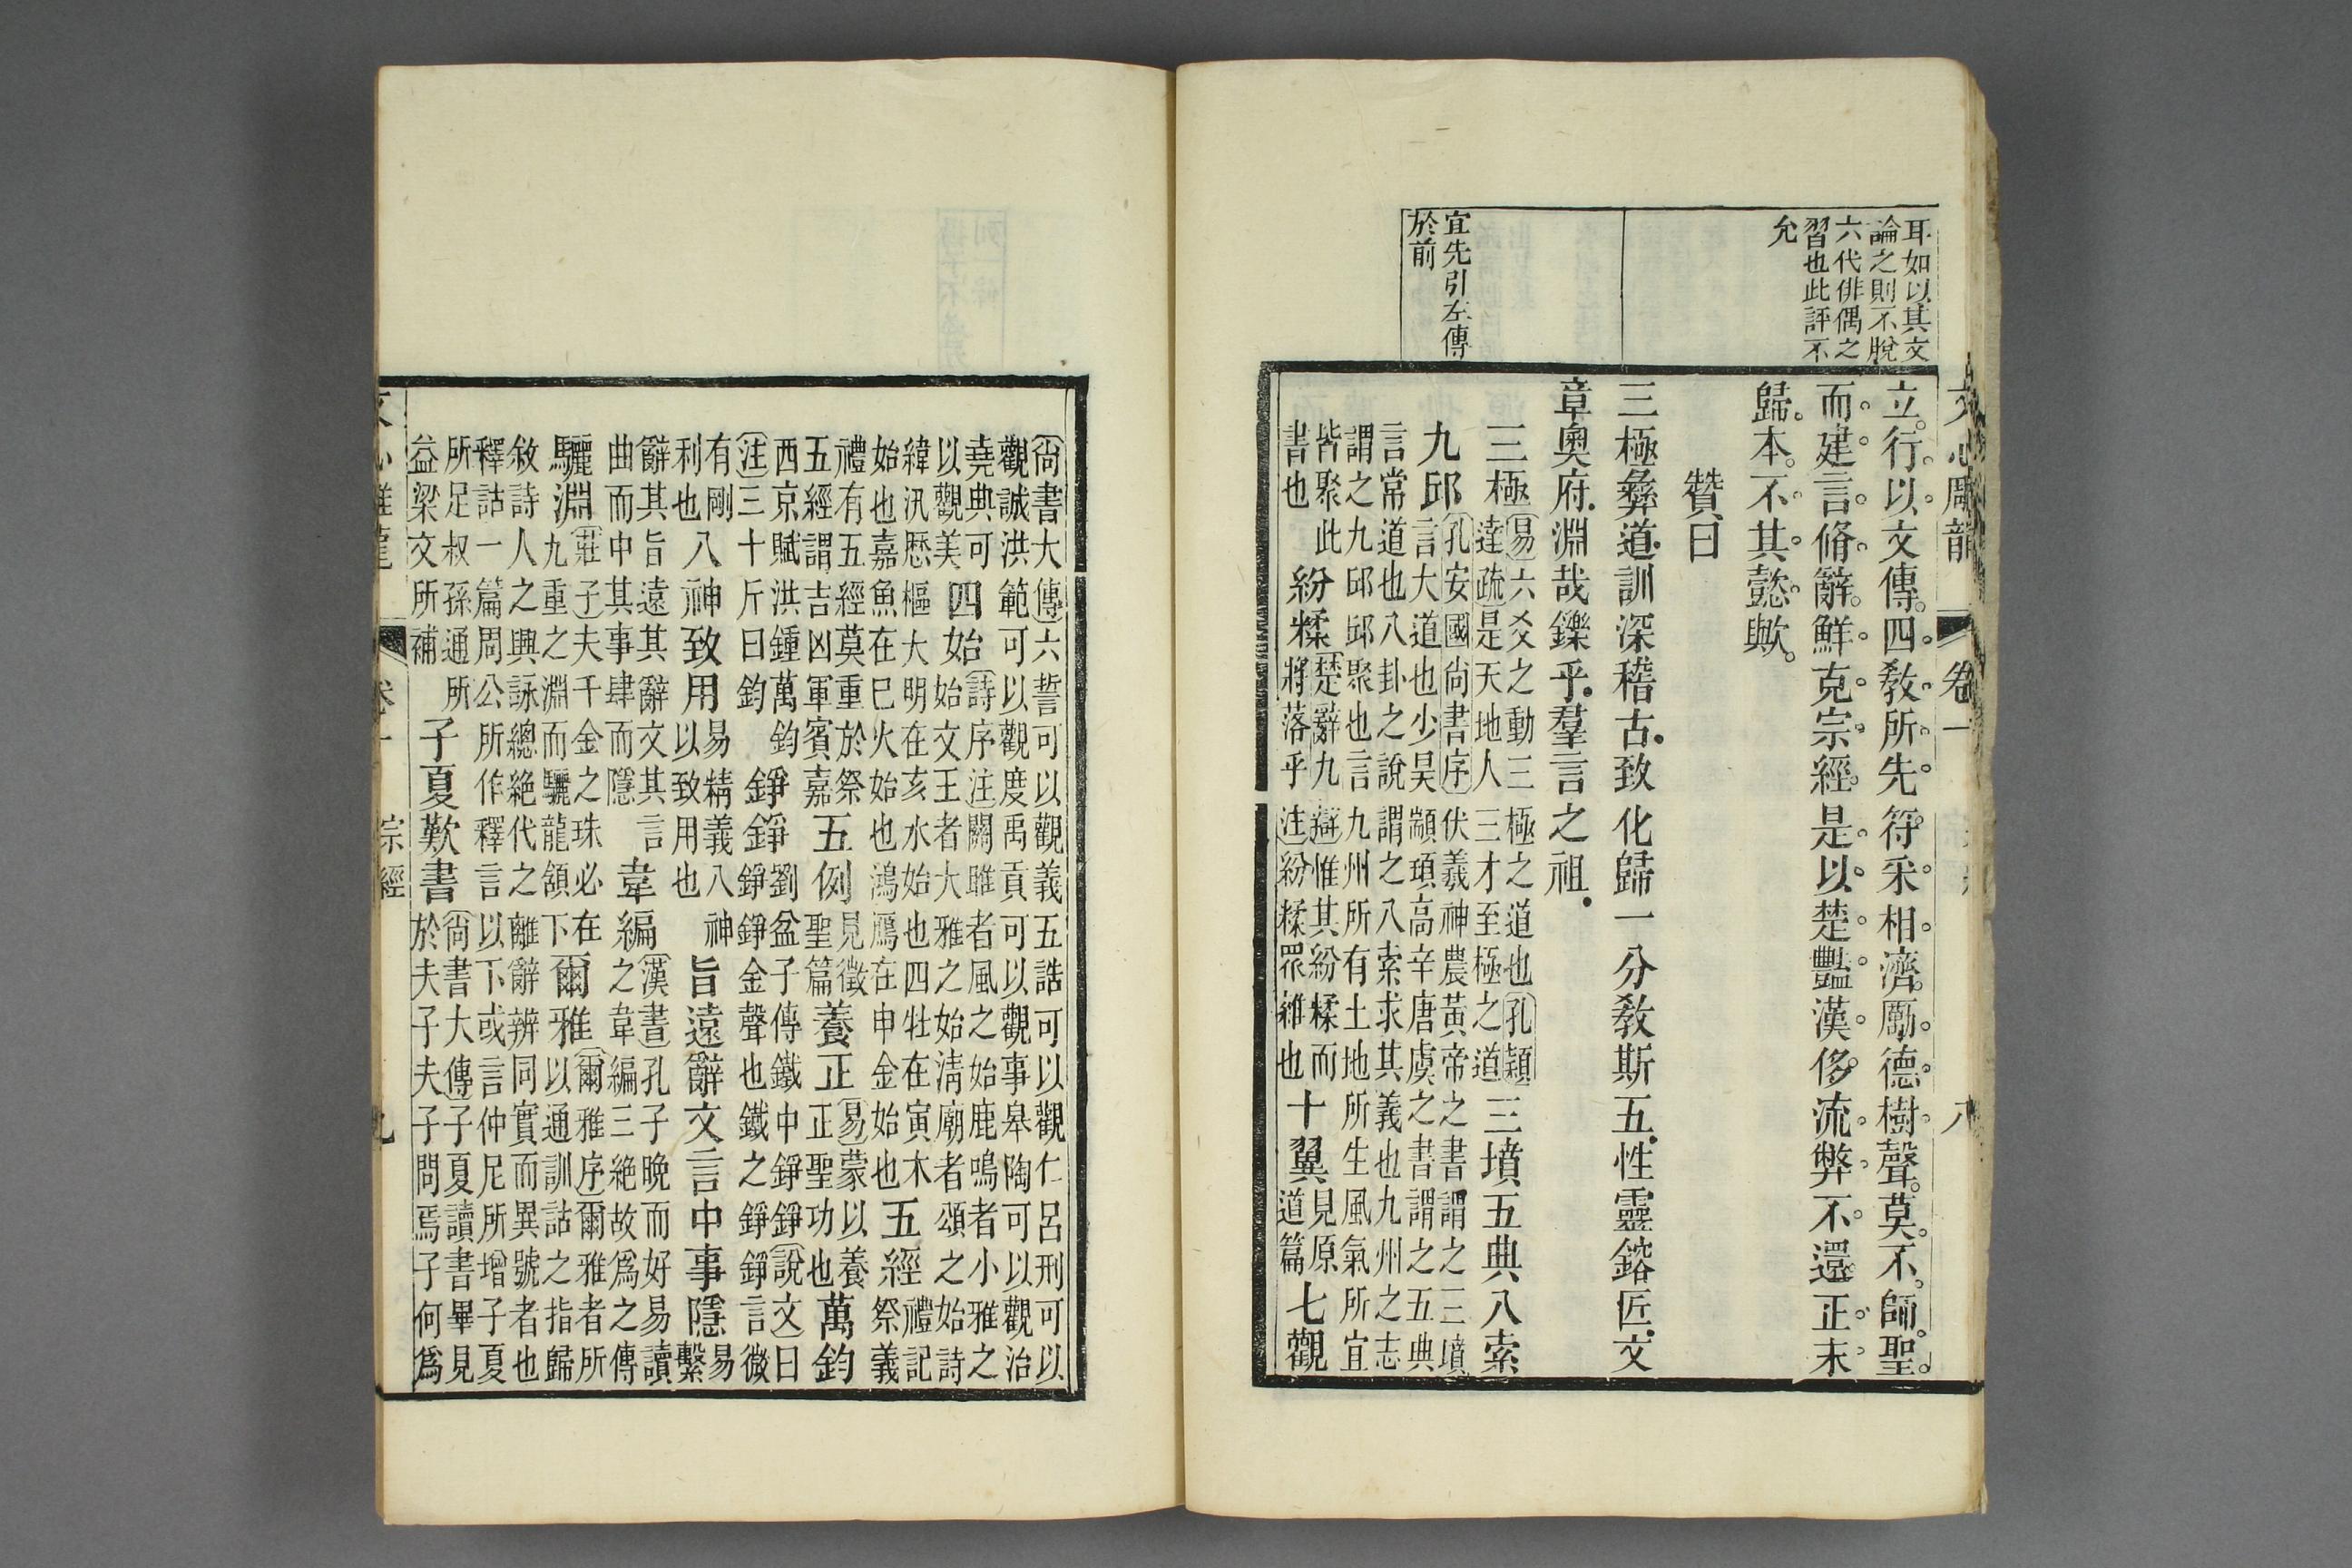 耳如以其文
論之則不脫
六代俳偶之
習也此評不
允
宜先引左傳
於前
文心雕龍 卷一 八
立行以文傳四教所先符采相濟勵德樹聲莫不師聖
而建言脩辭鮮克宗經是以楚豔漢侈流弊不還正末
歸本不其懿歟
贊曰
三極彝道訓深稽古致化歸一分教斯五性靈鎔匠文
章奧府淵哉鑠乎羣言之祖
三極易六爻之動三極之道也孔穎達疏是天地人三才至極之道三墳五典八索
九邱孔安國尚書序伏羲神農黃帝之書謂之三墳言大道也少昊顓頊高辛唐虞之書謂之五典
言常道也八卦之說謂之八索求其義也九州之志謂之九邱邱聚也言九州所有土地所生風氣所宜
皆聚此書也紛糅楚辭九辯惟其紛糅而將落乎注紛糅眾雜也十翼見原道篇七觀
尚書大傳六誓可以觀義五誥可以觀仁呂刑可以觀誠洪範可以觀度禹貢可以觀事皋陶可以觀治
堯典可以觀美四始詩序注關雎者風之始鹿鳴者小雅之始文王者大雅之始淸廟者頌之始詩
緯汎歷樞大明在亥水始也四牡在寅木始也嘉魚在巳火始也鴻鴈在申金始也五經禮記祭義
禮有五經莫重於祭五經謂吉凶軍賓嘉五例見徵聖篇養正易蒙以養正聖功也萬鈞
西京賦洪鍾萬鈞注三十斤曰鈞錚錚劉盆子傳鐵中錚錚說文曰錚錚金聲也鐵之錚錚言微
有剛利也八神致用易精義八神以致用也旨遠辭文言中事隱易繫
辭其旨遠其辭文其言曲而中其事肆而隱韋編漢書孔子晚而好易讀之韋編三絕故爲之傳
驪淵莊子夫千金之珠必在九重之淵而驪龍頷下爾雅爾雅序爾雅者所以通訓詁之指歸
敘詩人之興詠總絕代之離辭辨同實而異號者也釋詁一篇周公所作釋言以下或言仲尼所增子夏
所足叔孫通所益梁文所補子夏歎書尚書大傳子夏讀書畢見於夫子夫子問焉子何爲
文心雕龍 卷一 宗經 九